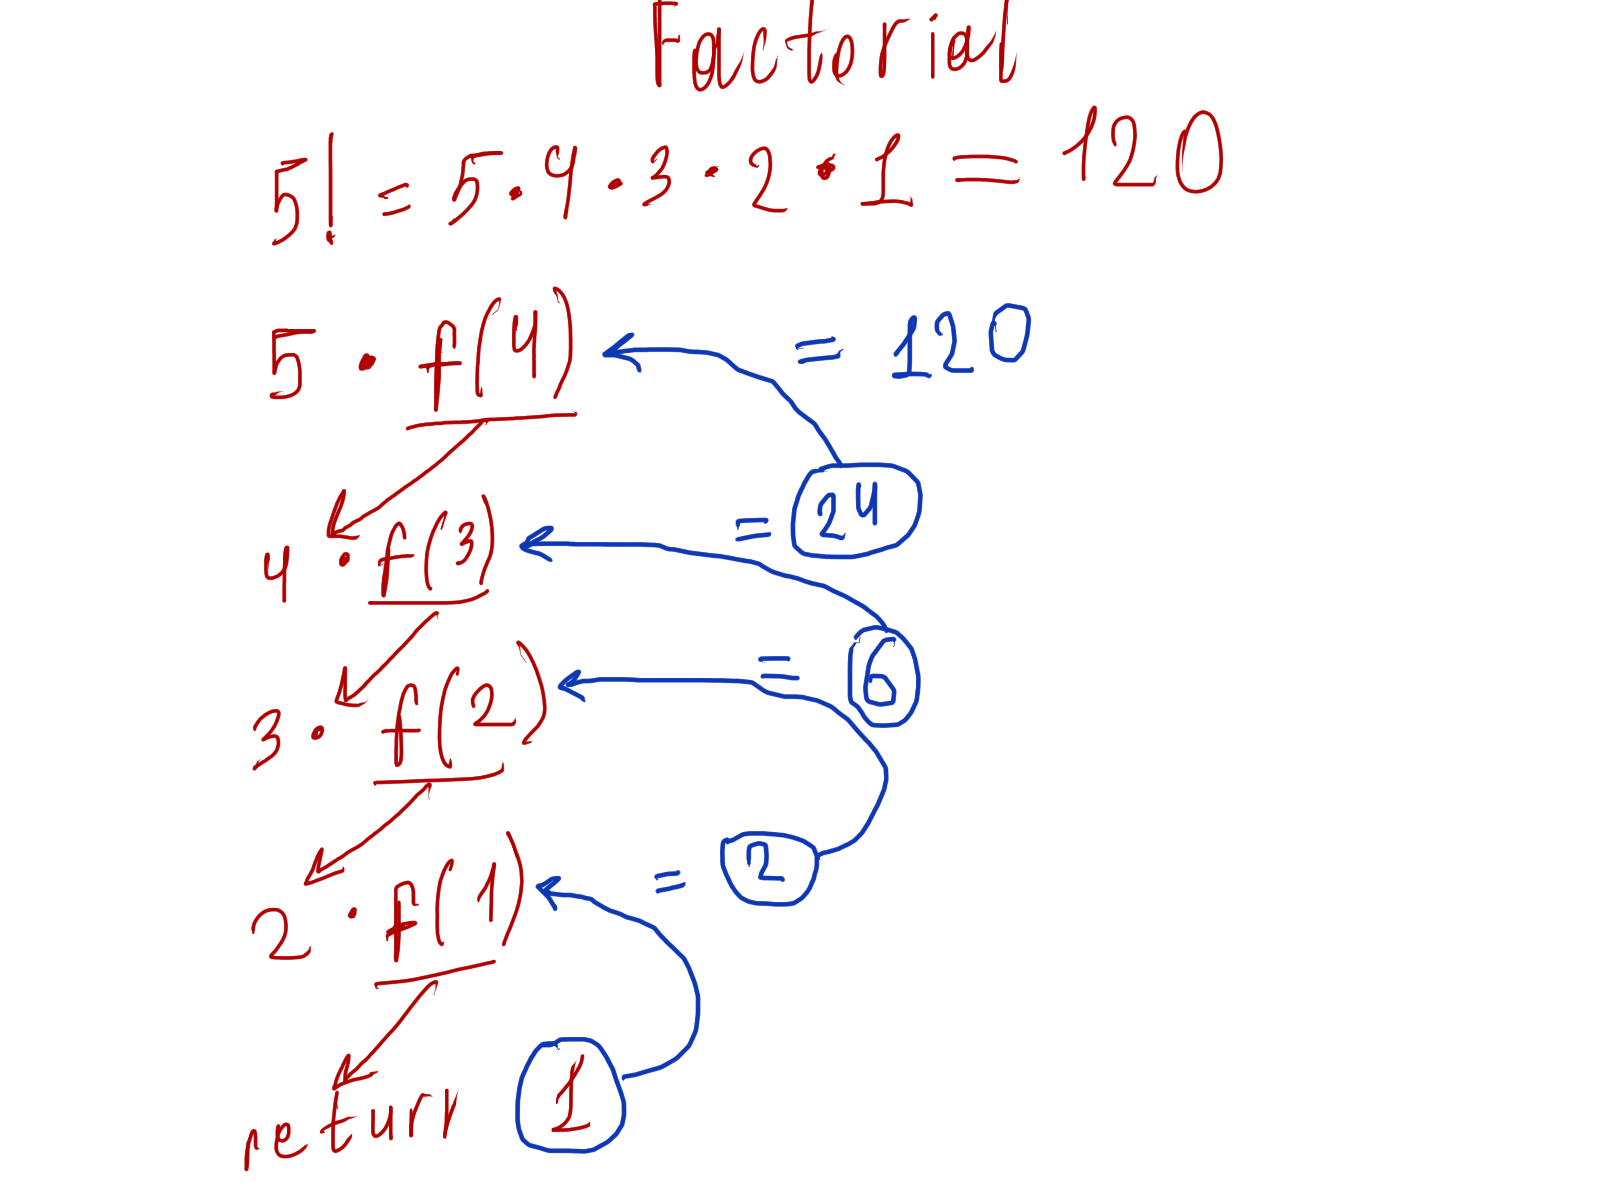 Factorial
5! = 5 · 4 · 3 · 2 · 1 = 120
5 · f(4) = 120
4 · f(3) = 24
3 · f(2) = 6
2 · f(1) = 2
return 1